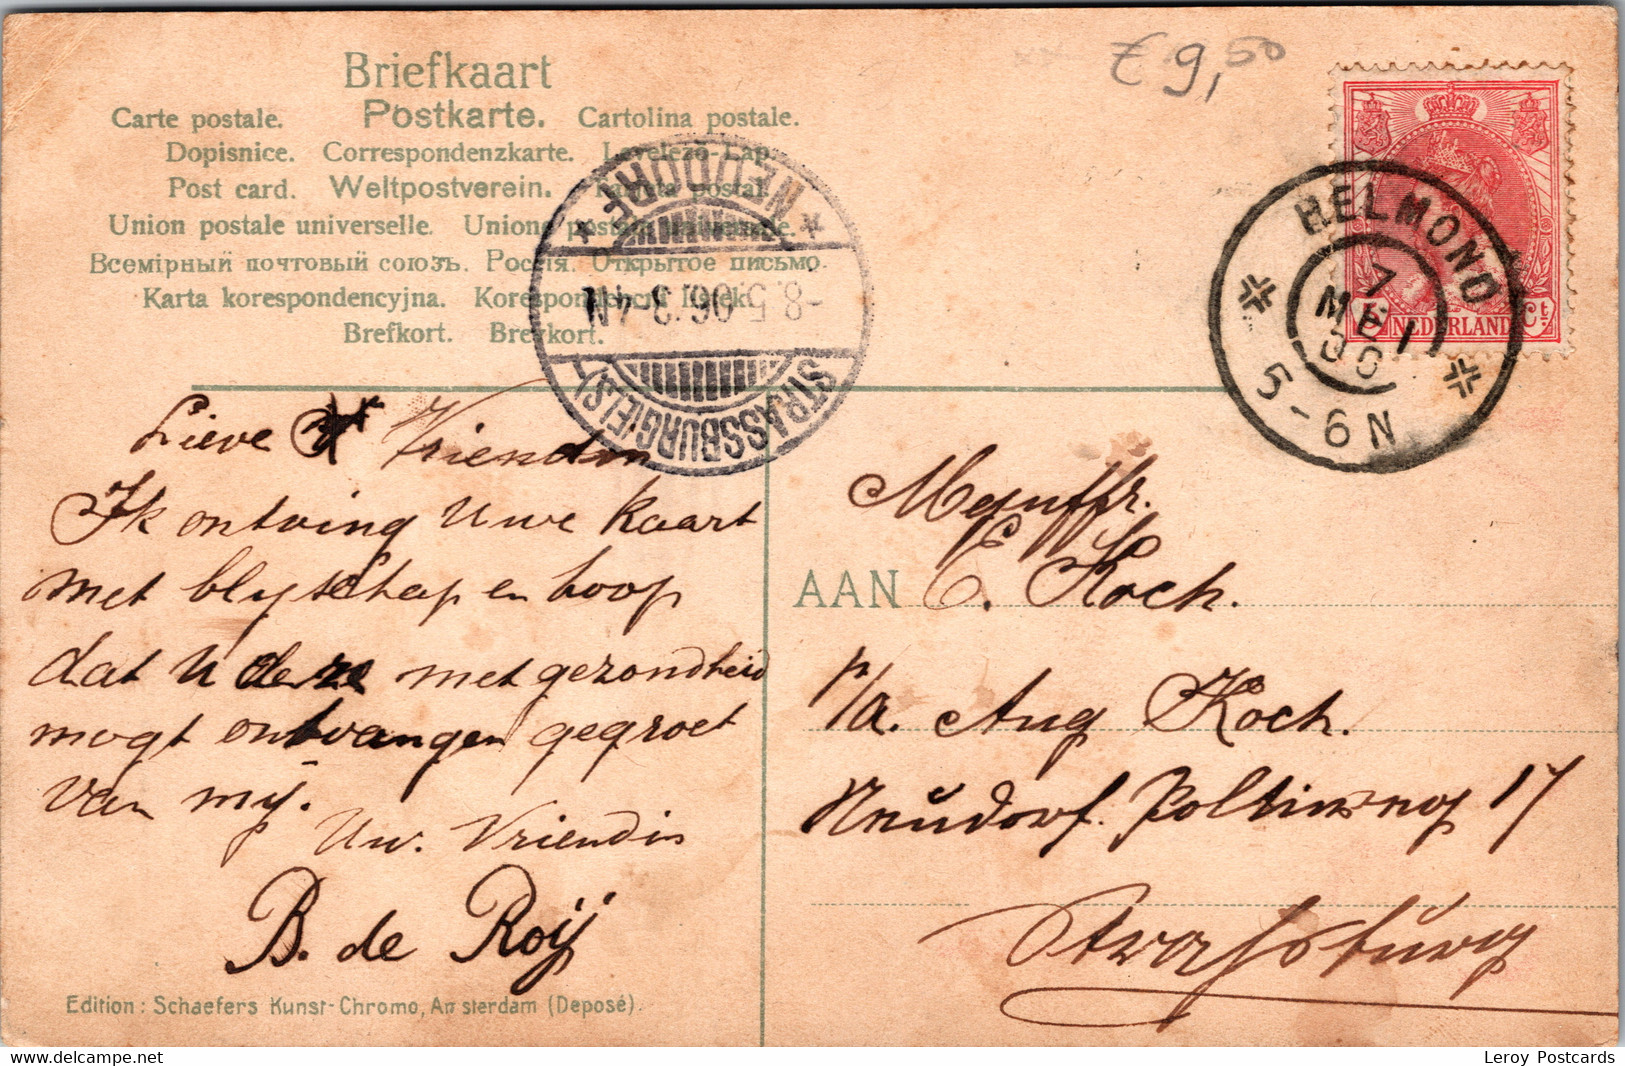 € 9,50
Briefkaart
Carte postale. Postkarte. Cartolina postale.
Dopisnice. Correspondenzkarte. Levelező-Lap.
Post card. Weltpostverein. postal.
Union postale universelle. Unione postale universale.
Всемірный почтовый союзъ. Россія. Открытое письмо.
Karta korespondencyjna. Korespondenční lístek.
Brefkort. Brevkort.
* NEUDORF *
-8.5.06.3-4N
STRASSBURG(ELS)
HELMOND
7
MEI
06
5-6N
5 NEDERLAND Ct.
Lieve Vriendin
Ik ontving Uwe kaart
met blyschap en hoop
dat U deze met gezondheid
mogt ontvangen gegroet
van mij.
Uw. Vriendin
B. de Roij
Mejuffr.
AAN E. Koch.
P/a. Aug Koch.
Neudorf. 17
Strassburg
Edition: Schaefers Kunst-Chromo, Amsterdam (Deposé).
Leroy Postcards